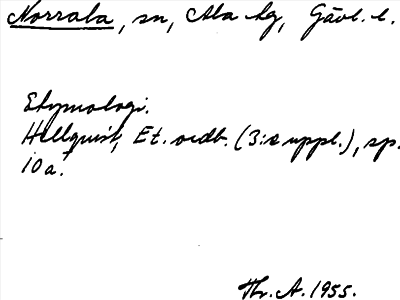 Norrala, sn, Ala hg, Gävl. l.
Etymologi.
Hellquist, Et. ordb. (3:e uppl.), sp.
10a.
Thr. A. 1955.